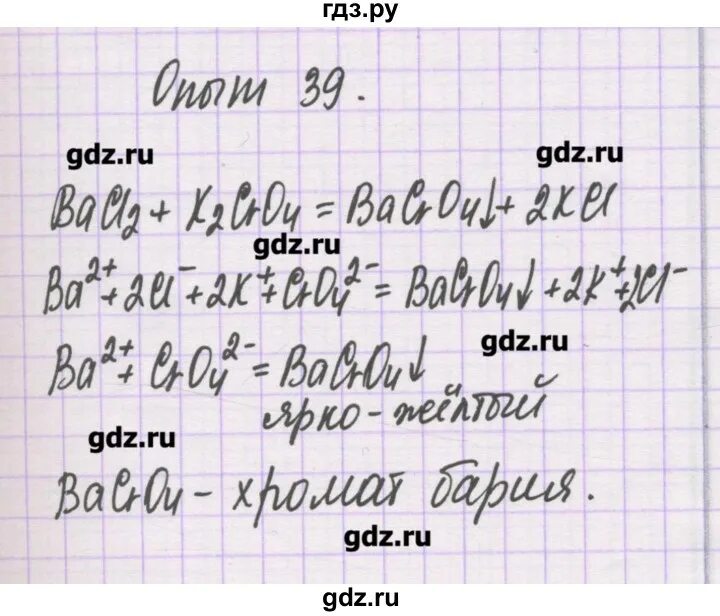 гдз.ру
Опыт 39.
gdz.ru
gdz.ru
BaCl₂ + K₂CrO₄ = BaCrO₄↓ + 2KCl
gdz.ru
Ba²⁺ + 2Cl⁻ + 2K⁺ + CrO₄²⁻ = BaCrO₄↓ + 2K⁺ + 2Cl⁻
gdz.ru
Ba²⁺ + CrO₄²⁻ = BaCrO₄↓
ярко-жёлтый
gdz.ru
BaCrO₄ - хромат бария.
gdz.ru
gdz.ru